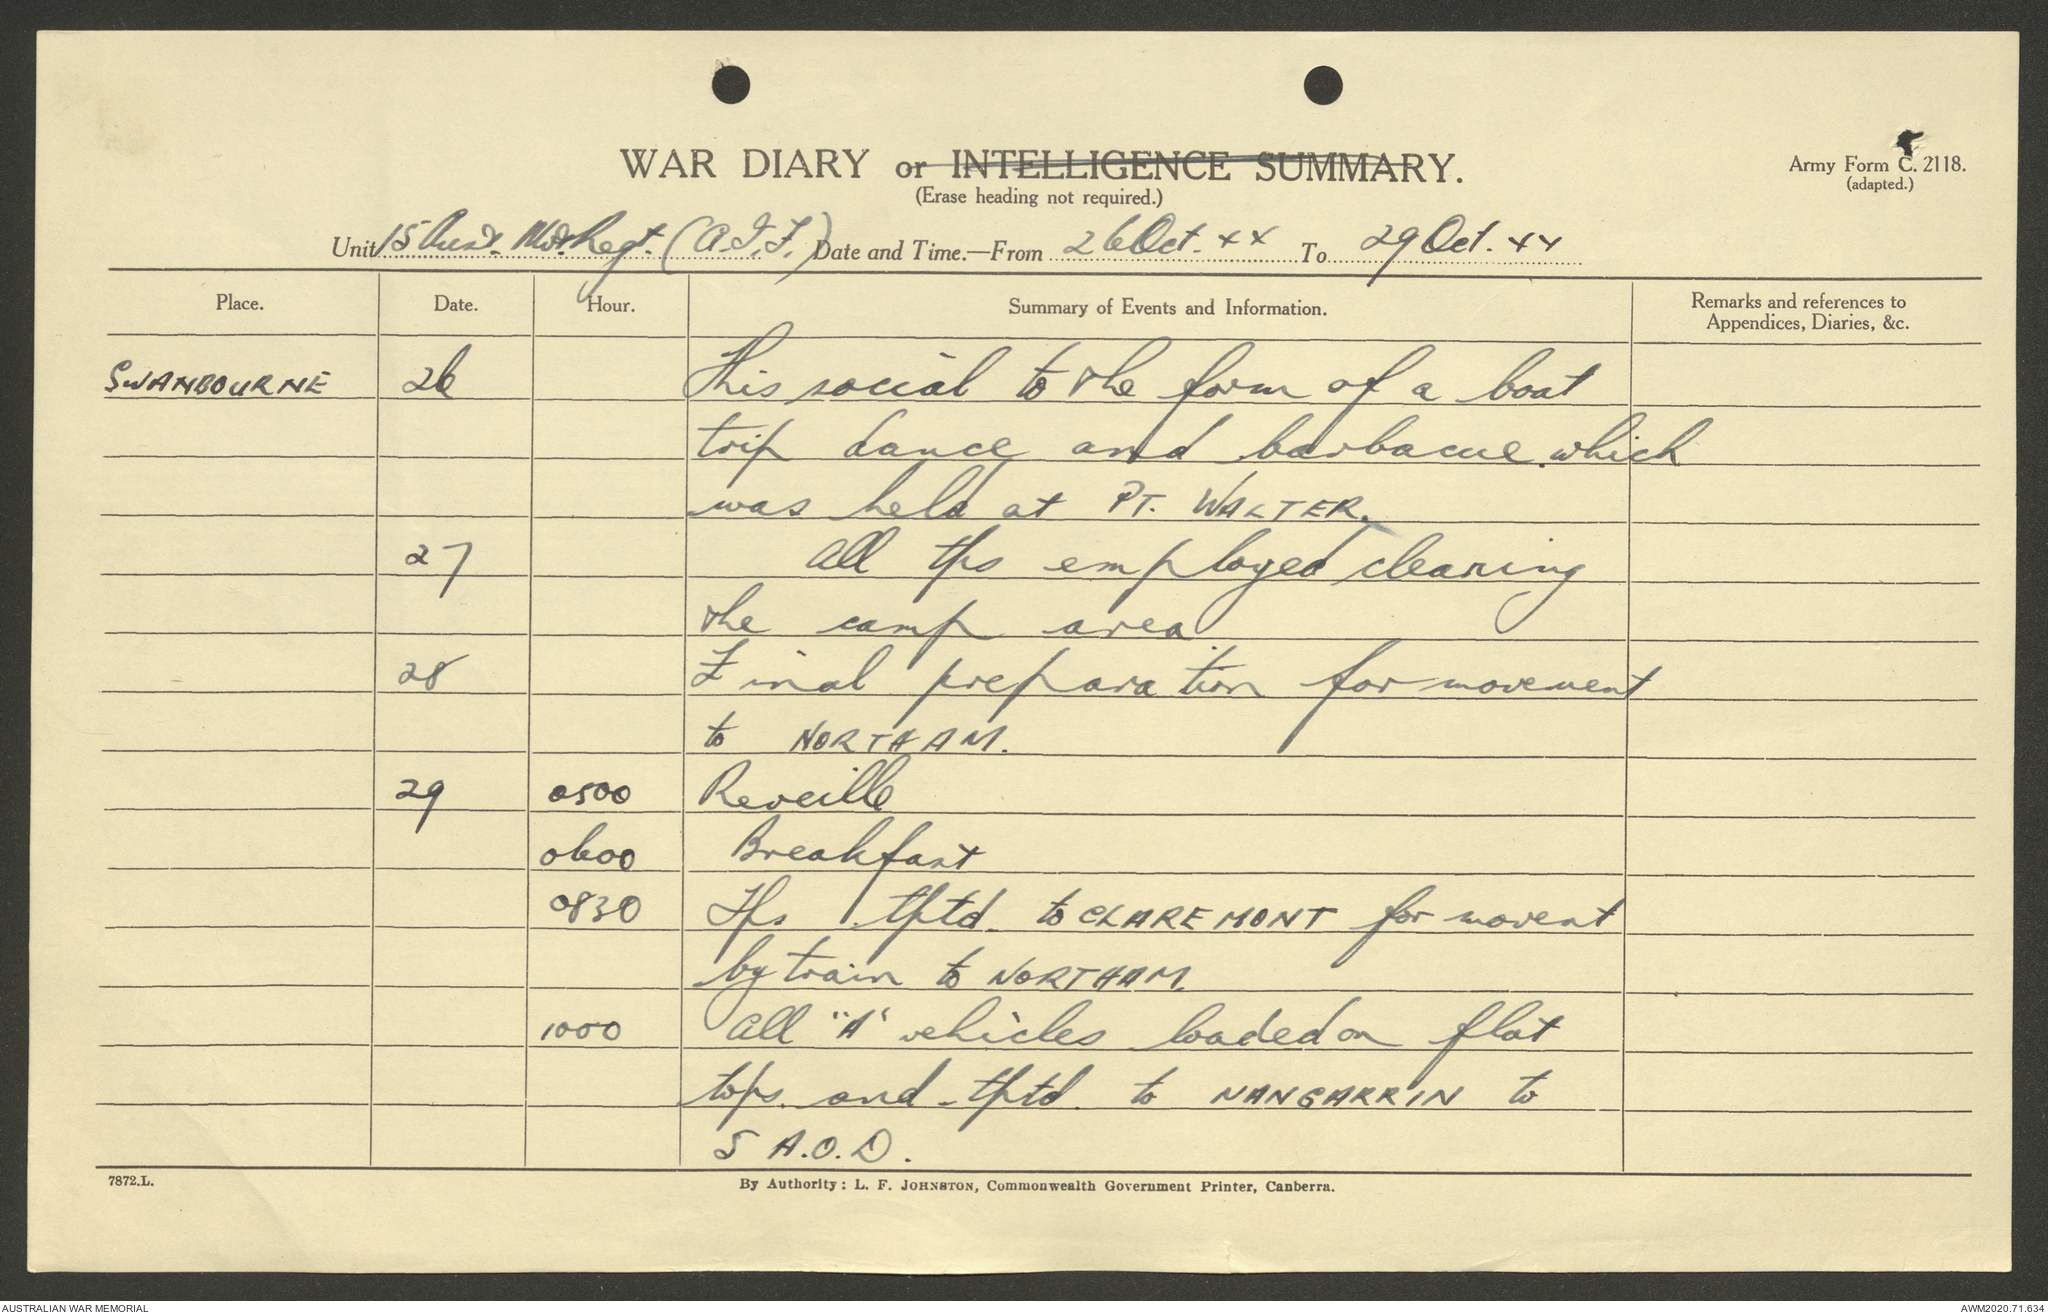 WAR DIARY or INTELLIGENCE SUMMARY.
(Erase heading not required.)
Army Form C. 2118.
(adapted.)
Unit 15 Aust. Mot. Regt. (A.I.F.) Date and Time.—From 26 Oct. 44 To 29 Oct. 44
Place. Date. Hour. Summary of Events and Information. Remarks and references to
Appendices, Diaries, &c.
SWANBOURNE 26 This social to the form of a boat
trip dance and barbacue. which
was held at PT. WALTER.
27 All tps employed cleaning
the camp area
28 Final preparation for movement
to NORTHAM.
29 0500 Reveille
0600 Breakfast
0830 Tps tptd. to CLAREMONT for movent
by train to NORTHAM.
1000 All "A" vehicles loaded on flat
tops. and tptd. to NANGARRIN to
5 A.O.D.
7872.L. By Authority: L. F. JOHNSTON, Commonwealth Government Printer, Canberra.
AUSTRALIAN WAR MEMORIAL AWM2020.71.634